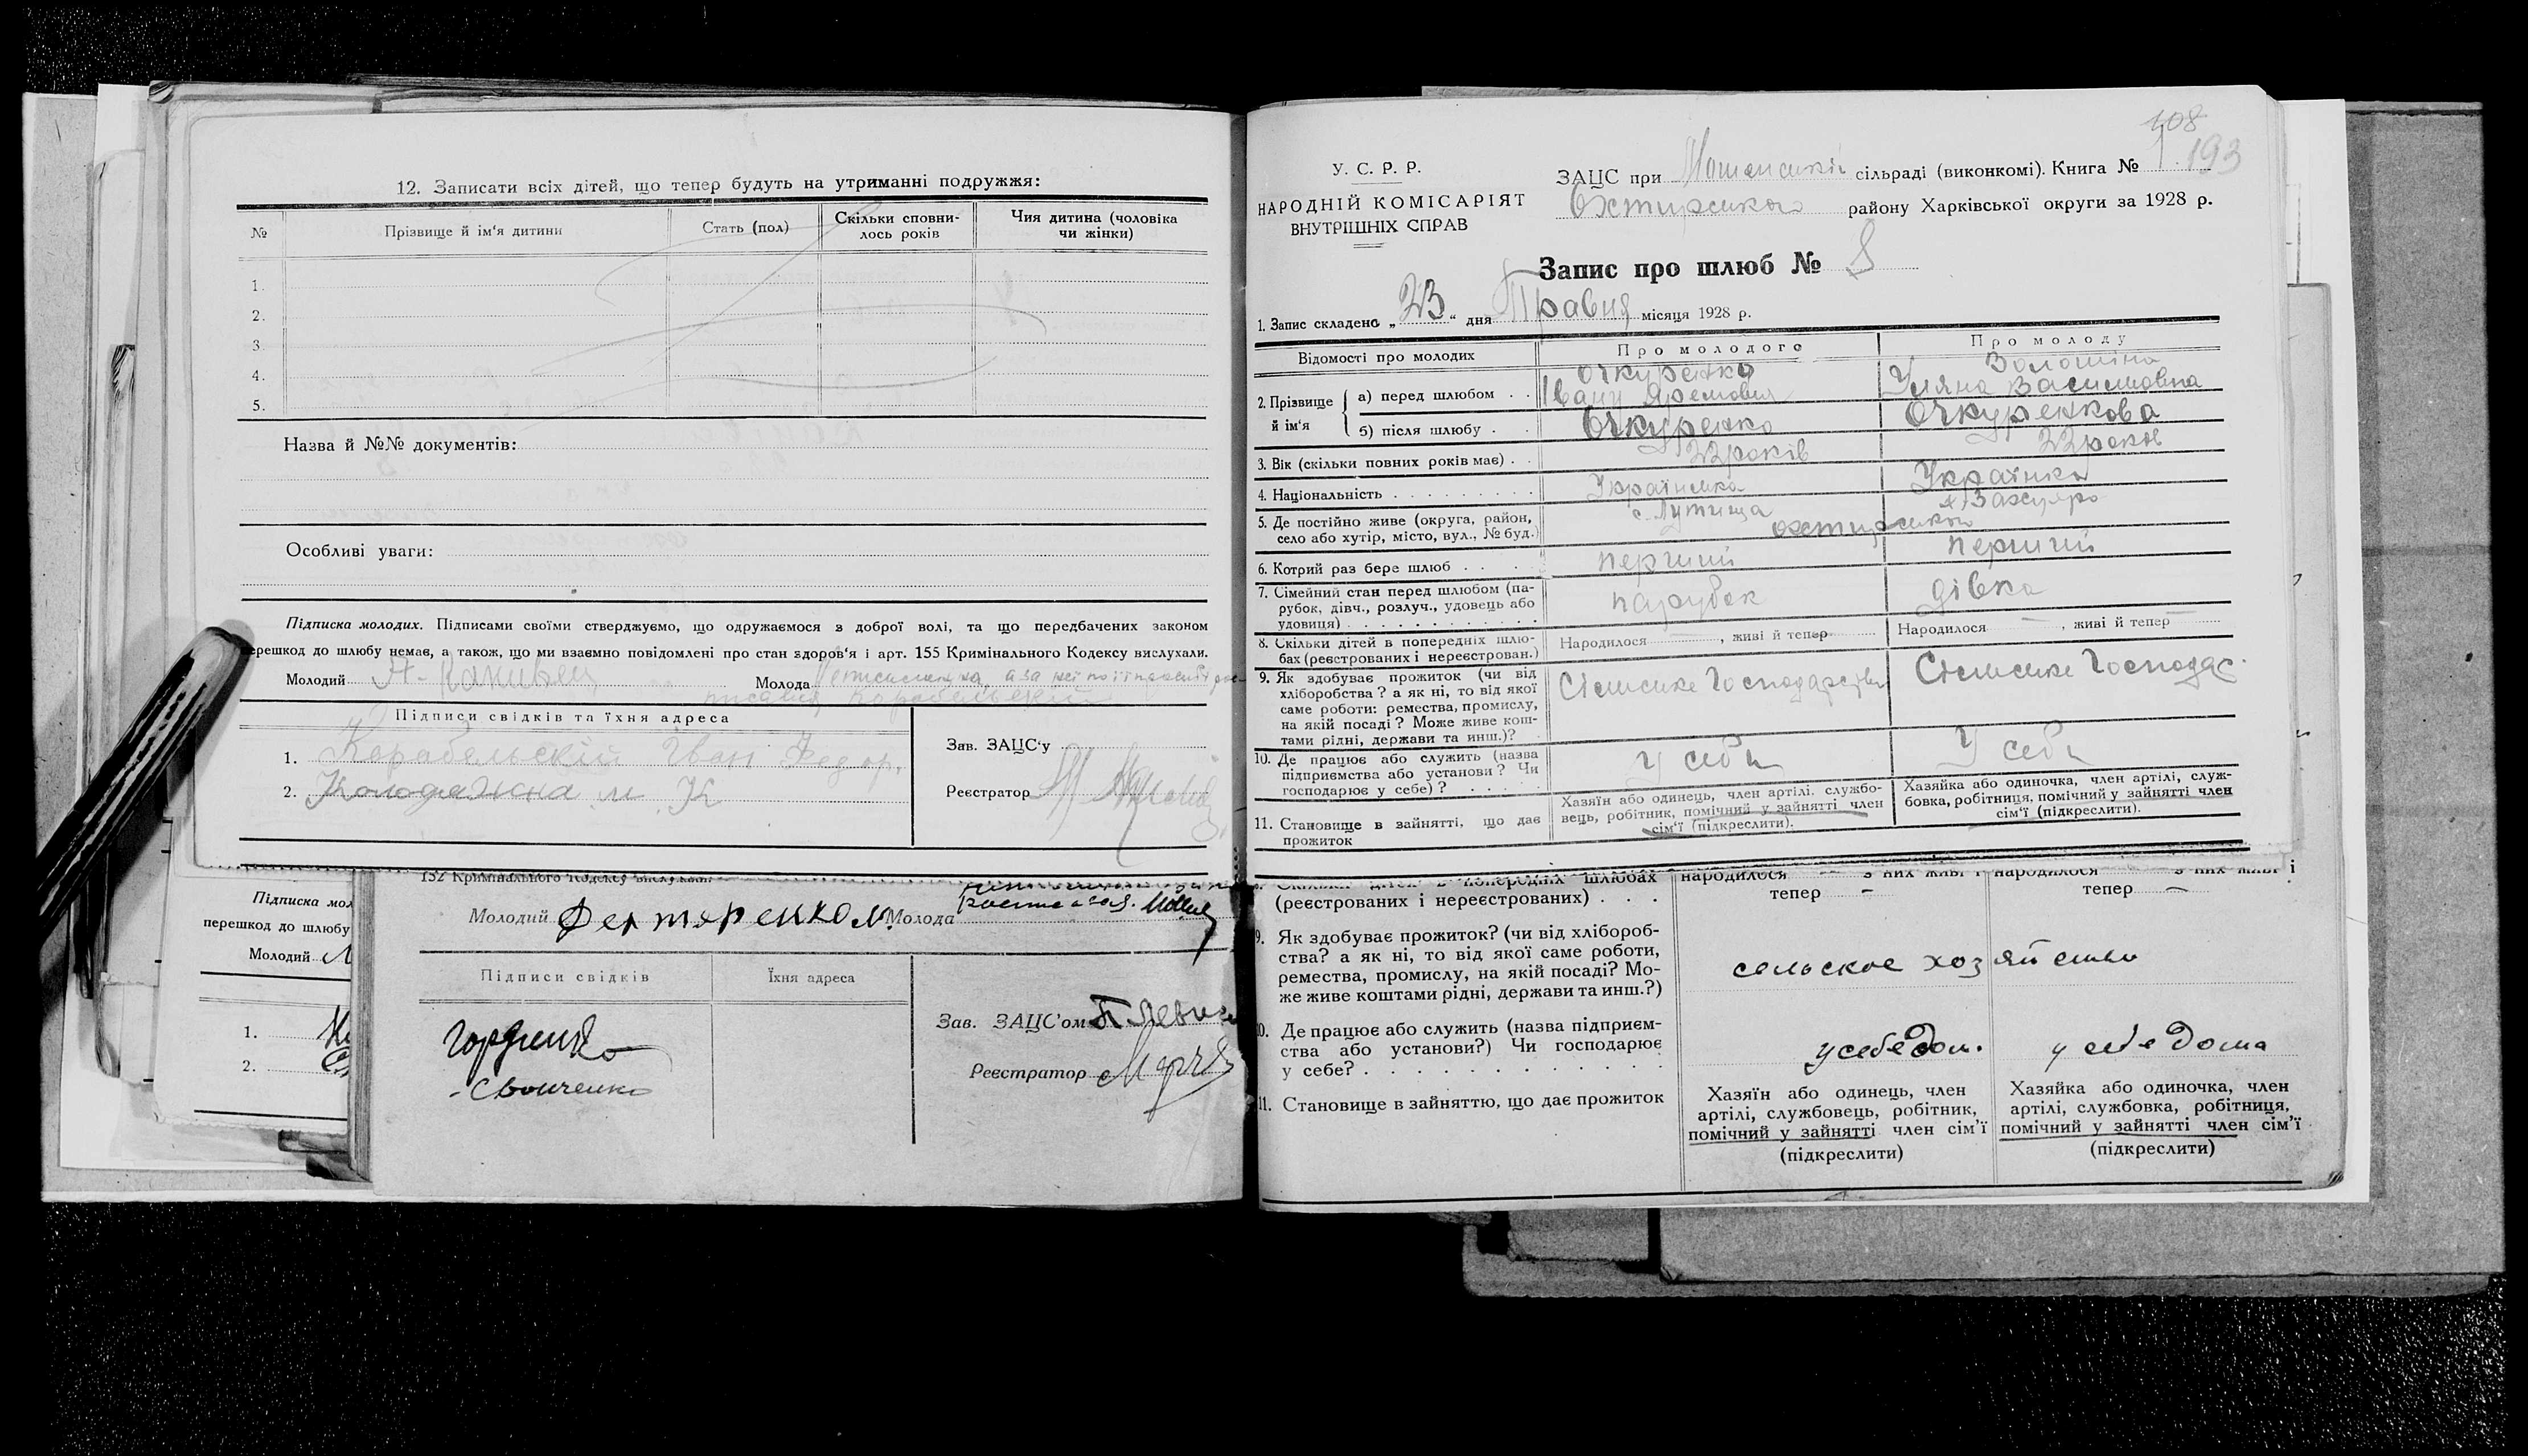 12. Записати всіх дітей, що тепер будуть на утриманні подружжя:
№ Прізвище й ім'я дитини Стать (пол) Скільки сповни-лось років Чия дитина (чоловіка чи жінки)
1.
2.
3.
4.
5.
Назва й №№ документів:
Особливі уваги:
Підписка молодих. Підписами своїми стверджуємо, що одружаємося з доброї волі, та що передбачених законом
перешкод до шлюбу немає, а також, що ми взаємно повідомлені про стан здоров'я і арт. 155 Кримінального Кодексу вислухали.
Молодий Молода
Підписи свідків та їхня адреса
1. Корабельскій Іван Федор.
2. Колодяжна М К
Зав. ЗАЦС'у
Реєстратор
Підписка мол
перешкод до шлюбу
Молодий
1.
2.
152 Кримінального Кодексу вислухали.
Молодий Молода
Підписи свідків Їхня адреса
Гордиенко
Зав. ЗАЦС'ом
Реєстратор
108
193
У. С. Р. Р.
НАРОДНІЙ КОМІСАРІЯТ
ВНУТРІШНІХ СПРАВ
ЗАЦС при сільраді (виконкомі). Книга № 1
Охтирського району Харківської округи за 1928 р.
Запис про шлюб № 8
1. Запис складено „23“ дня Травня місяця 1928 р.
Відомості про молодих Про молодого Про молоду
2. Прізвище й ім'я
а) перед шлюбом . . Очкуренко Волошіна
Івану Яремович Уляна Василовна
б) після шлюбу . . Очкуренко Очкуренкова
3. Вік (скільки повних років має) . . 22 років 22 років
4. Національність . . . . . . . . . Українська Українка
5. Де постійно живе (округа, район,
село або хутір, місто, вул., № буд.)
с. Лутища Охтирського
6. Котрий раз бере шлюб . . . . перший перший
7. Сімейний стан перед шлюбом (па-
рубок, дівч., розлуч., удовець або
удовиця) . . . . . . . . . . . . парубок дівка
8. Скільки дітей в попередніх шлю-
бах (реєстрованих і нереєстрован.)
Народилося — , живі й тепер Народилося — , живі й тепер —
9. Як здобуває прожиток (чи від
хліборобства? а як ні, то від якої
саме роботи: ремества, промислу,
на якій посаді? Може живе кош-
тами рідні, держави та инш.)?
Сільське Господарство Сільське Господас.
10. Де працює або служить (назва
підприємства або установи? Чи
господарює у себе)? . . . . . у себи У себи
11. Становище в зайнятті, що дає
прожиток
Хазяїн або одинець, член артілі, службо-
вець, робітник, помічний у зайнятті член
сім'ї (підкреслити).
Хазяйка або одиночка, член артілі, служ-
бовка, робітниця, помічний у зайнятті член
сім'ї (підкреслити).
(реєстрованих і нереєстрованих) . . . тепер — тепер —
9. Як здобуває прожиток? (чи від хлібороб-
ства? а як ні, то від якої саме роботи,
ремества, промислу, на якій посаді? Мо-
же живе коштами рідні, держави та инш.?)
сельское хозяйство
10. Де працює або служить (назва підприєм-
ства або установи?) Чи господарює
у себе? . . . . . . . . . . . . . у себе дом. у себе дома
11. Становище в зайняттю, що дає прожиток
Хазяїн або одинець, член
артілі, службовець, робітник,
помічний у зайнятті член сім'ї
(підкреслити)
Хазяйка або одиночка, член
артілі, службовка, робітниця,
помічний у зайнятті член сім'ї
(підкреслити)